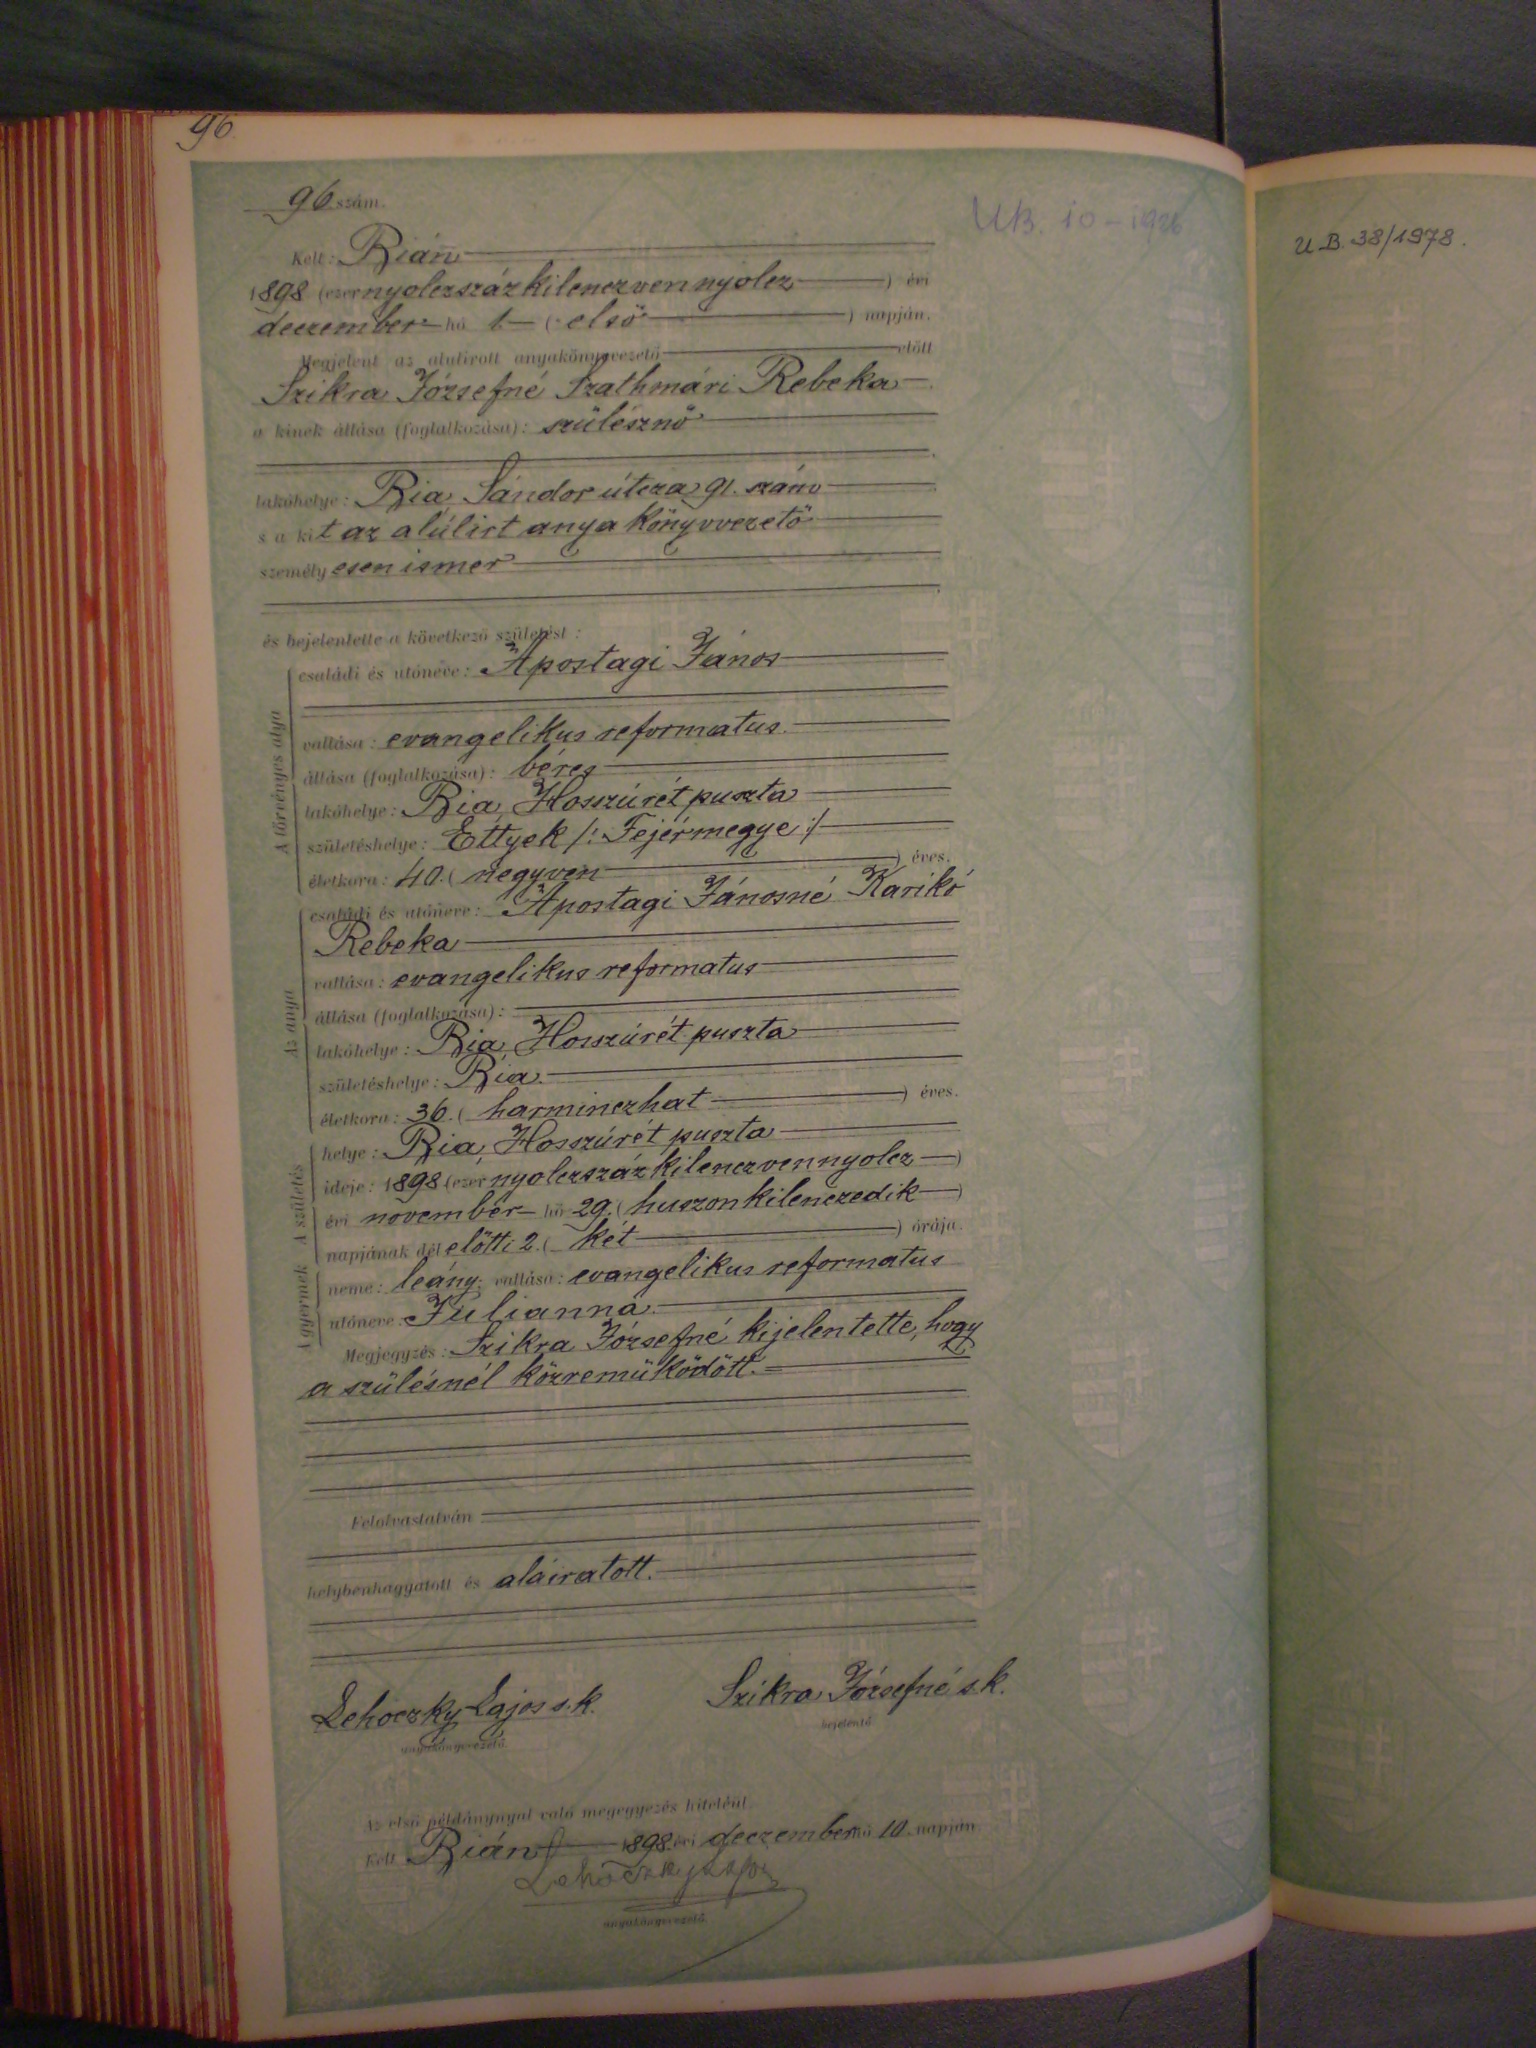 96
96 szám.
UB. 10-1926
U.B. 38/1978.
Kelt: Bián
1898 (ezernyolczszázkilenczvennyolcz) évi
deczember hó 1. (első) napján.
Megjelent az alulirott anyakönyvvezető előtt
Szikra Józsefné Szathmári Rebeka
a kinek állása (foglalkozása): szülésznő
lakóhelye: Bia, Sándor útcza 91. szám
s a kit az alúlirt anyakönyvvezető
személyesen ismer
és bejelentette a következő születést:
A törvényes atya
családi és utóneve: Apostagi János
vallása: evangelikus reformatus.
állása (foglalkozása): béres
lakóhelye: Bia, Hosszúrét puszta
születéshelye: Ettyek /: Fejérmegye :/
életkora: 40. (negyven) éves.
Az anya
családi és utóneve: Apostagi Jánosné Karikó
Rebeka
vallása: evangelikus reformatus
állása (foglalkozása):
lakóhelye: Bia, Hosszúrét puszta
születéshelye: Bia.
életkora: 36. (harminczhat) éves.
A születés
helye: Bia, Hosszúrét puszta
ideje: 1898 (ezernyolczszázkilenczvennyolcz)
évi november hó 29. (huszonkilenczedik)
napjának délelőtti 2. (két) órája.
A gyermek
neme: leány; vallása: evangelikus reformatus
utóneve: Julianna.
Megjegyzés: Szikra Józsefné kijelentette, hogy
a szülésnél közreműködött.
Felolvastatván
helybenhagyatott és aláiratott.
Lehoczky Lajos s.k.
anyakönyvvezető.
Szikra Józsefné s.k.
bejelentő
Az első példánynyal való megegyezés hiteléül.
Kelt Bián 1898. évi deczember hó 10. napján
Lehoczky Lajos
anyakönyvvezető.